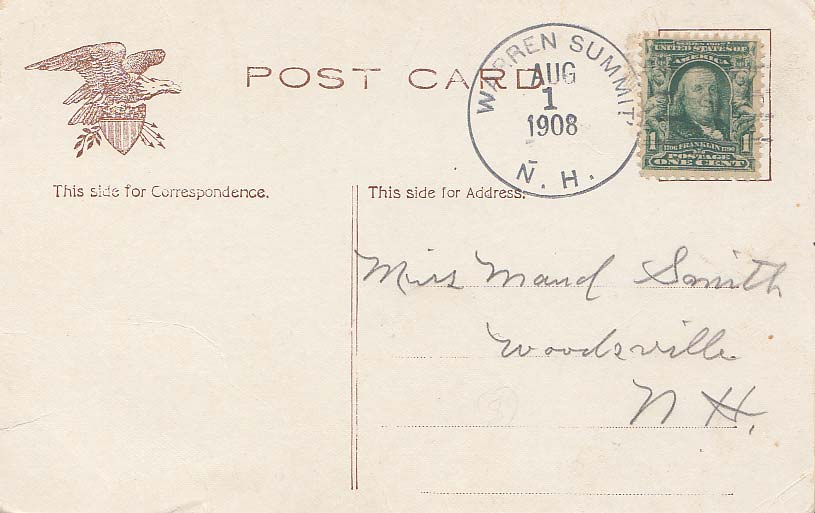 POST CARD
WARREN SUMMIT
AUG
1
1908
N. H.
UNITED STATES OF
AMERICA
1 1706 FRANKLIN 1790 1
POSTAGE
ONE CENT
This side for Correspondence.
This side for Address.
Miss Maud Smith
Woodsville
N H.